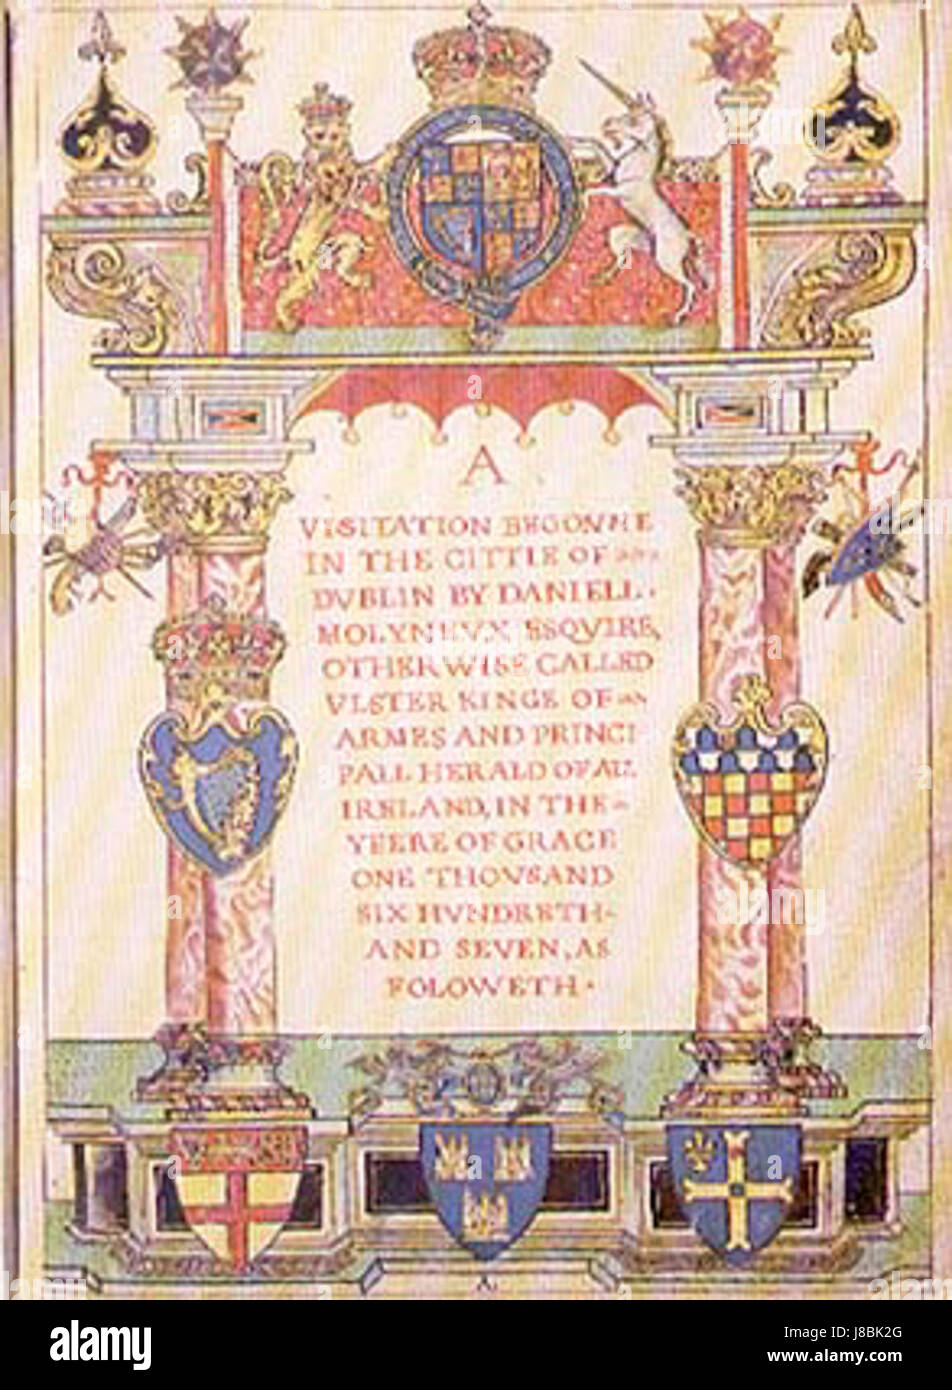 A
VISITATION BEGOVNE
IN THE CITTIE OF
DVBLIN BY DANIELL·
MOLYNEVX ESQVIRE,
OTHERWISE CALLED
VLSTER KINGE OF
ARMES AND PRINCI
PALL HERALD OF ALL
IRELAND, IN THE
YEERE OF GRACE
ONE THOVSAND
SIX HVNDRETH
AND SEVEN, AS
FOLOWETH·
alamy
Image ID: J8BK2G
www.alamy.com